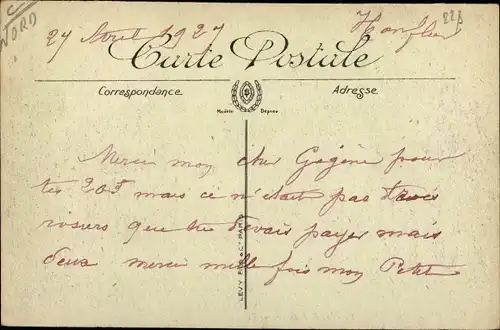 C
NORD
27 Aout 1927 Honfleur 228
Carte Postale
Correspondance Adresse
Modèle Déposé
Merci mon cher Gégène pour
tes 20f mais ce n'était pas trois
rosiers que tu devais payer mais
deux merci mille fois mon Petit
LÉVY FILS & Cie PARIS